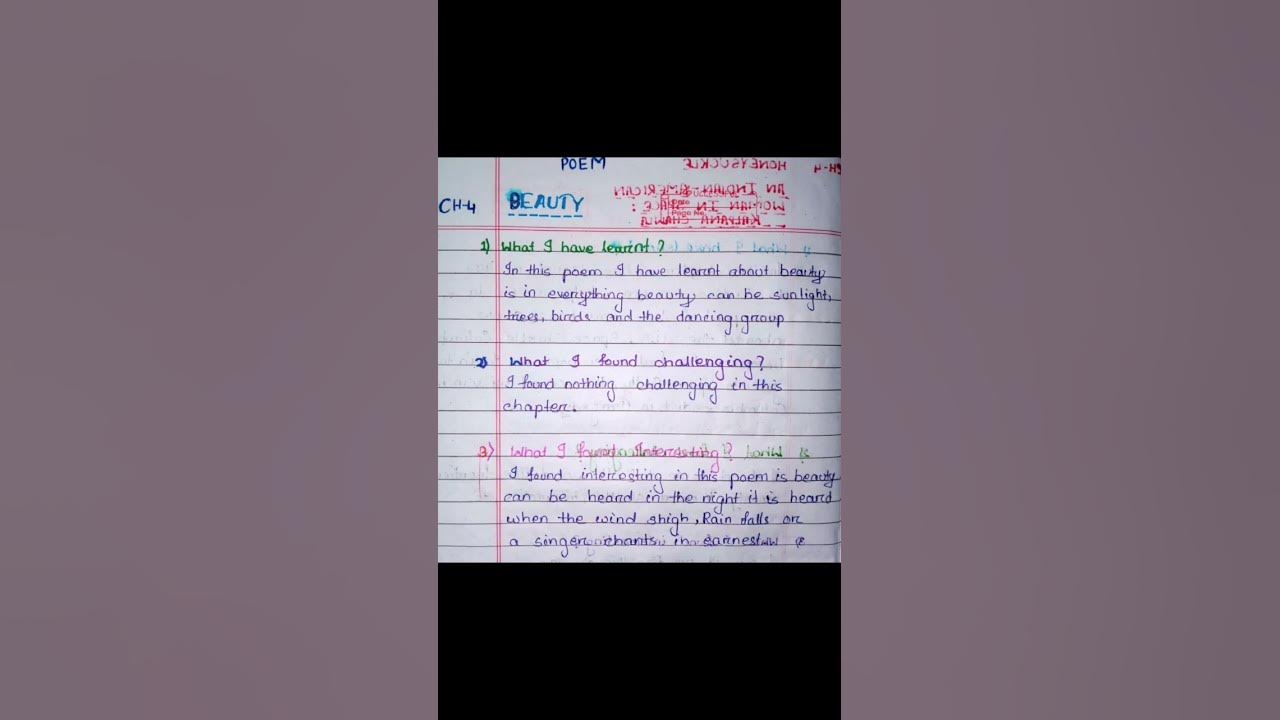 POEM HONEYSUCKLE CH-4
AN INDIAN-AMERICAN
CH-4 BEAUTY WOMAN IN SPACE:
Page No.
KALPANA CHAWLA
1) What I have learnt?
In this poem I have learnt about beauty
is in everything beauty can be sunlight,
trees, birds and the dancing group
2) What I found challenging?
I found nothing challenging in this
chapter.
3) What I found Interesting?
I found interesting in this poem is beauty
can be heard in the night it is heard
when the wind shigh, Rain falls or
a singer chants in earnest